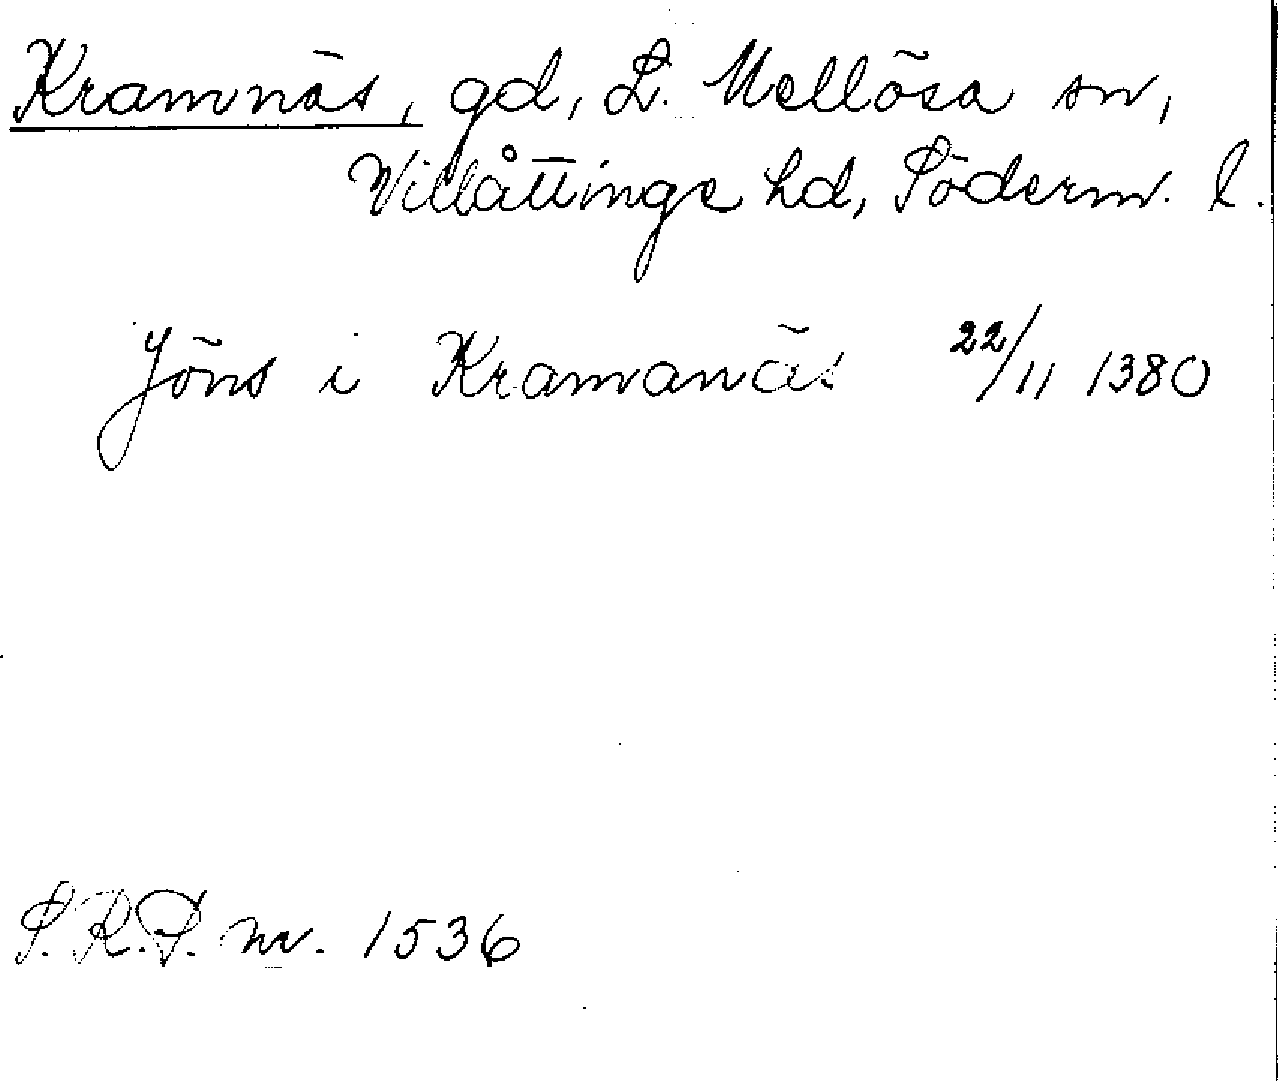 Kramnäs, gd, L. Mellösa sn,
Villåttinge hd, Söderm. l.
Jöns i Kramanäs 22/11 1380
S.R.P. nr. 1536